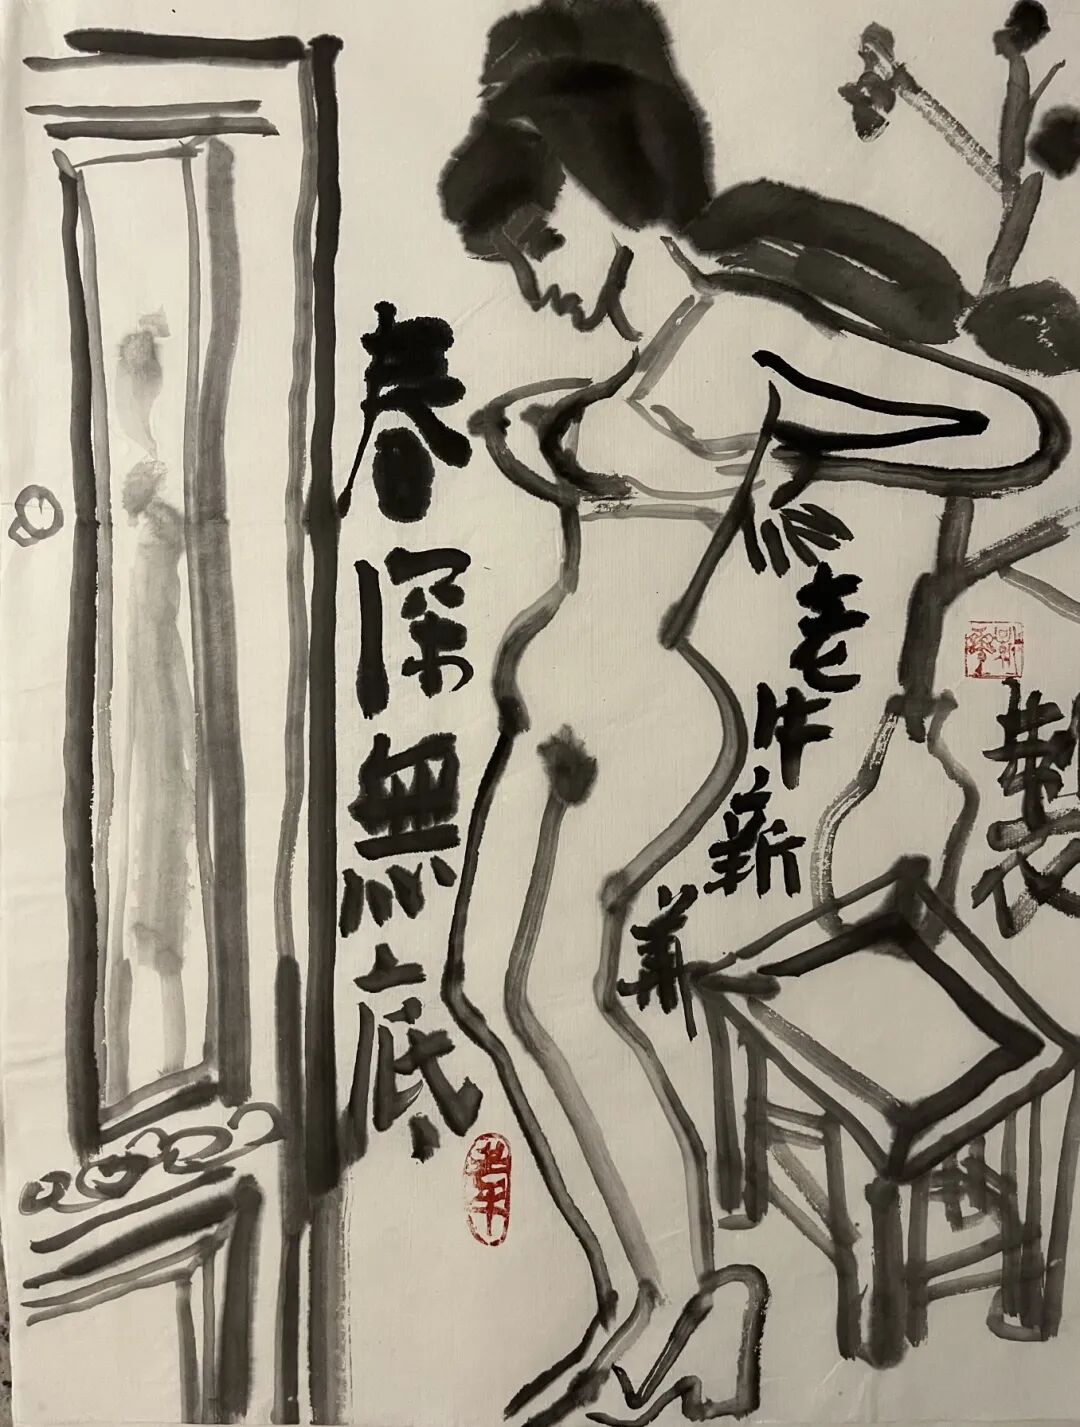 春深無底
老牛新華
製